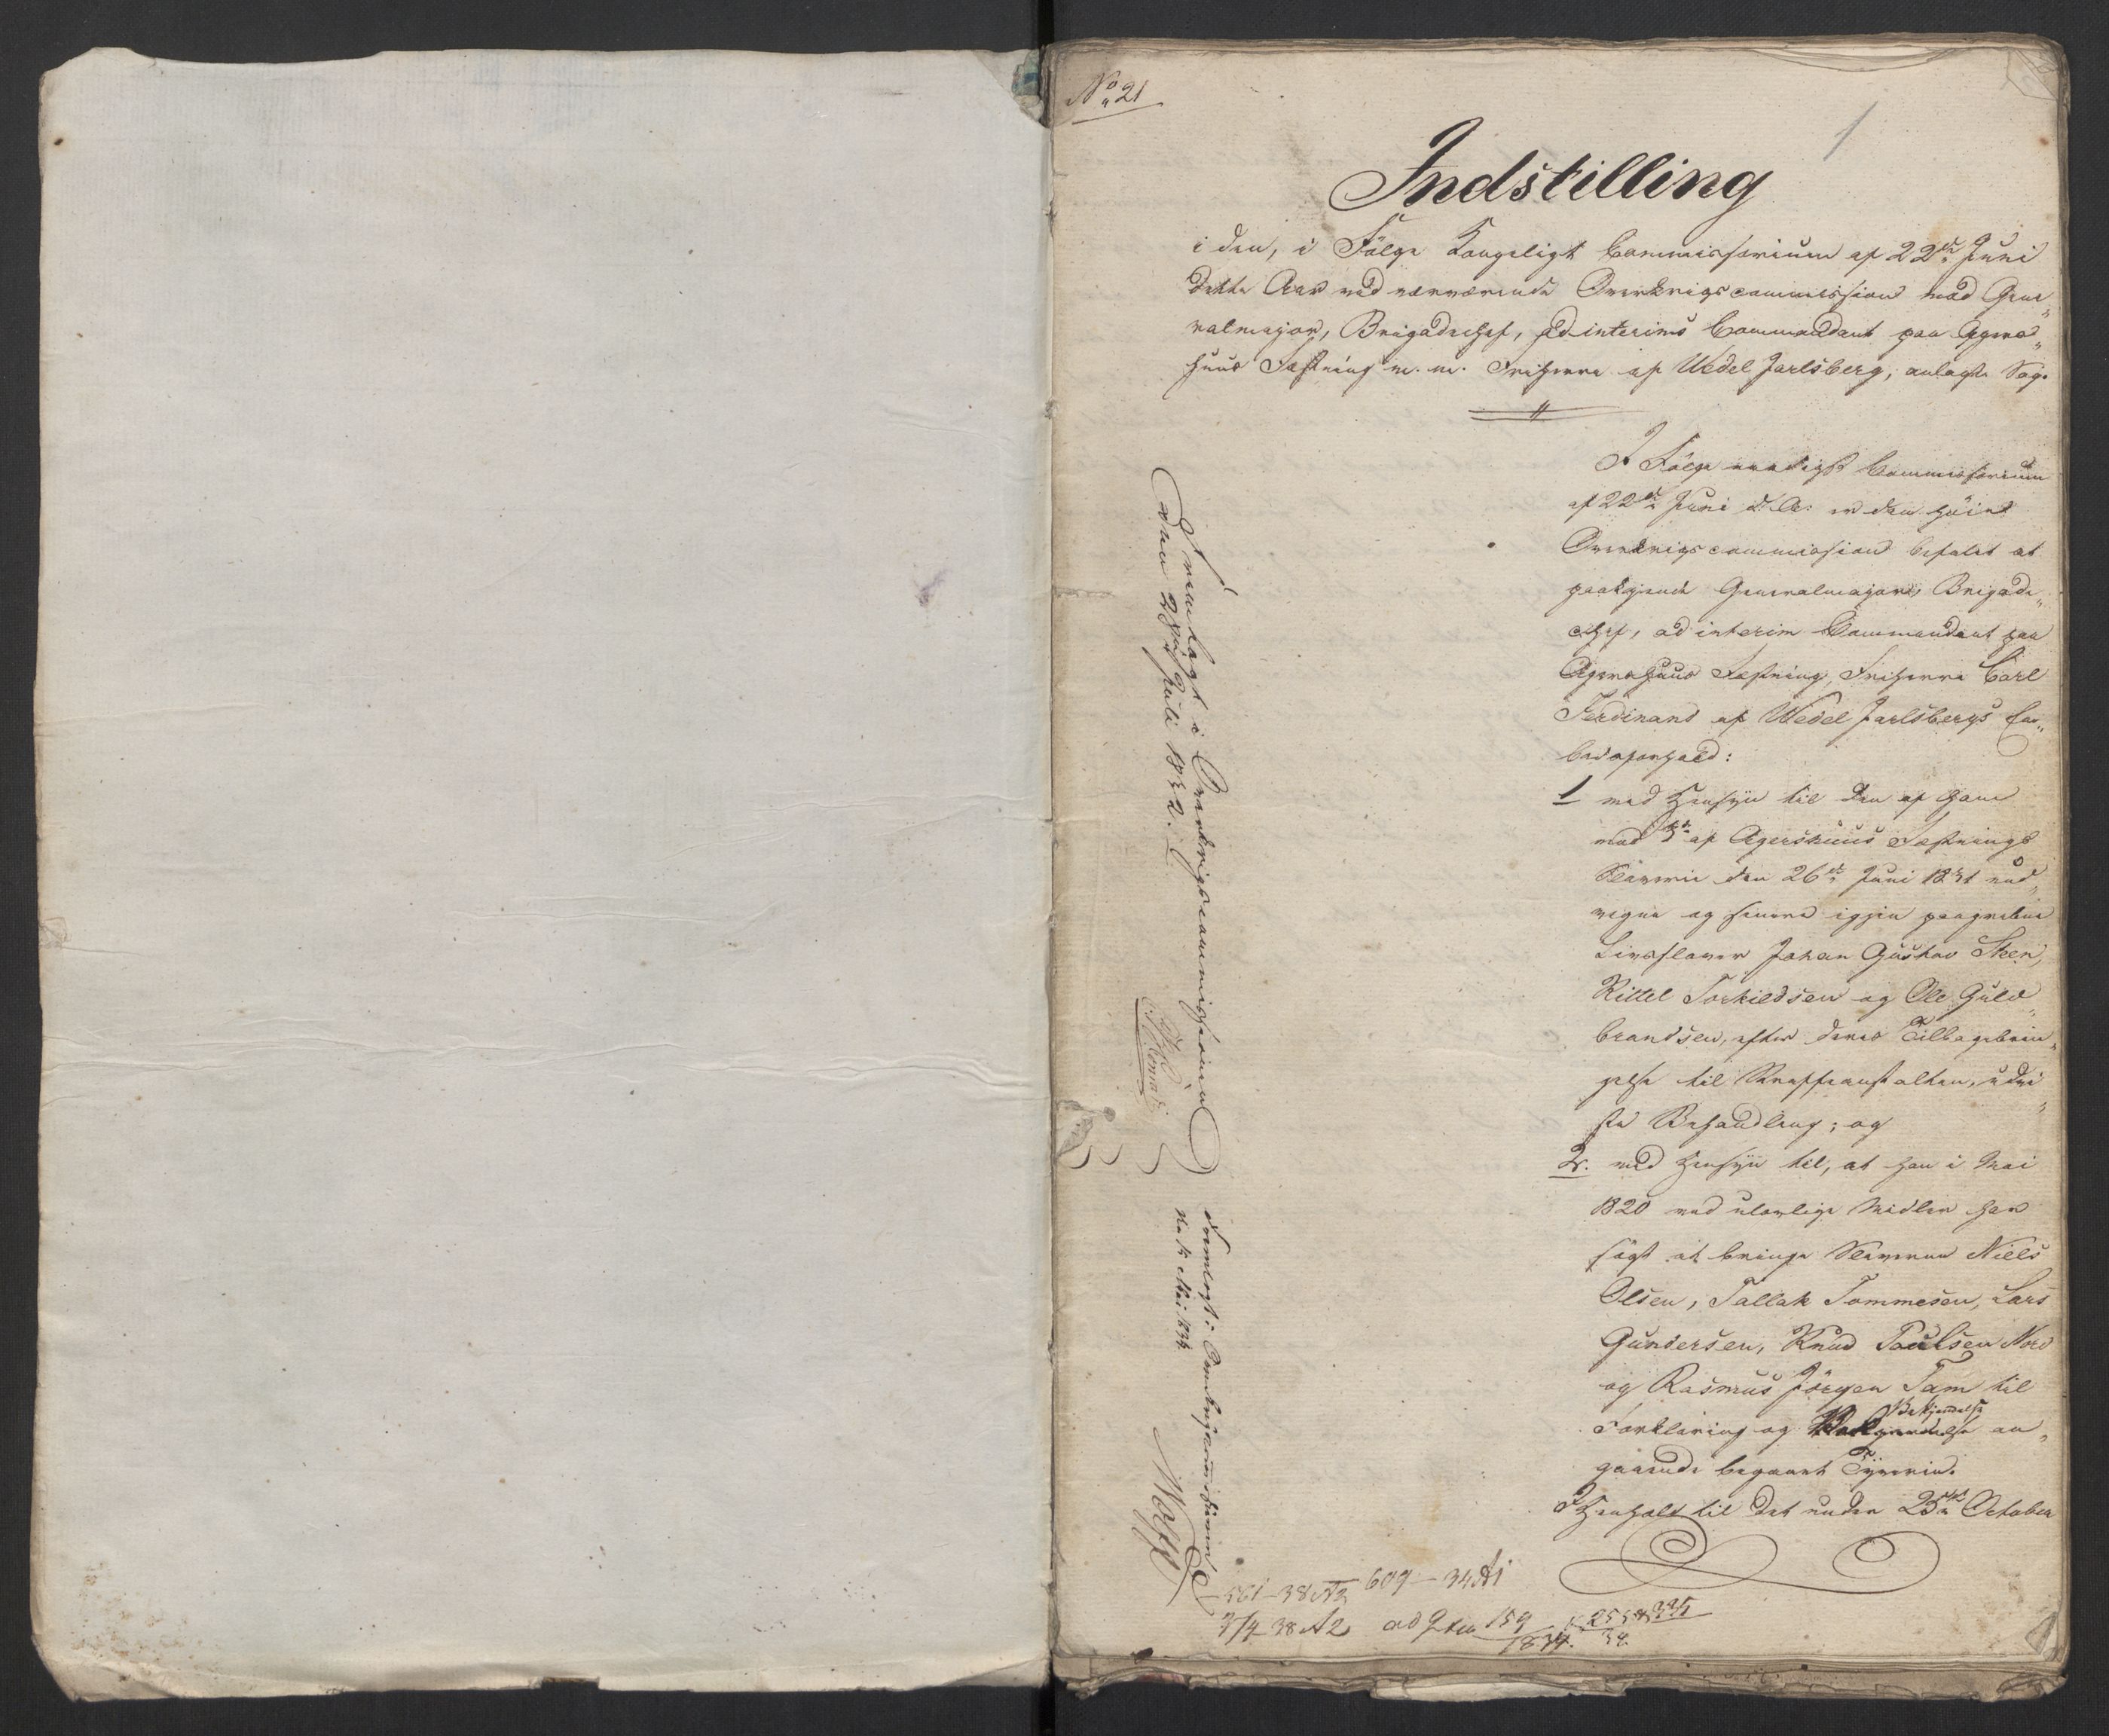 No 21
1
Indstilling
i den, i Følge Kongeligt Commissorium af 22de Juni
dette Aar ved nærværende Overkrigscommission mod Gene„
ralmajor, Brigadechef, ad interims Commandant paa Agers„
huus Fæstning m. m. Friherre af Wedel Jarlsberg, anlagte Sag.
I Følge naadigst Commissorium
af 22de Juni d. A. er den høie
Overkrigscommission befalet at
paakjende Generalmajor, Brigade„
chef, ad interim Commandant paa
Agershuus Fæstning, Friherre Carl
Ferdinand af Wedel Jarlsbergs Em„
bedsforhold:
1 med Hensyn til den af ham
mod 3de af Agershuus Fæstnings
Slaverie den 26de Juni 1831 und„
vegne og senere igjen paagrebne
Livsslaver Johan Gustav Steen,
Kittel Torkildsen og Ole Guld„
brandsen, efter deres Tilbagebrin„
gelse til Straffeanstalten, udvi„
ste Behandling; og
2. med Hensyn til, at han i Mai
1820 ved ulovlige Midler har
søgt at bringe Slaverne Niels
Olsen, Tallak Tommesen, Lars
Gundersen, Knud Paulsen Nord
og Rasmus Jörgen Tam til
Bekjendelse
Forklaring og an„
gaaende begaaet Tyverie.
I Henhold til det under 25de October
Fremlagt i Overkrigscommissionen
den 2den Juli 1832.
Fremlagt i Overkrigscommissionen
Mai 1834
561-38 A2 609-34 A1
3/4 38 A2 ad 159
1834.
34.